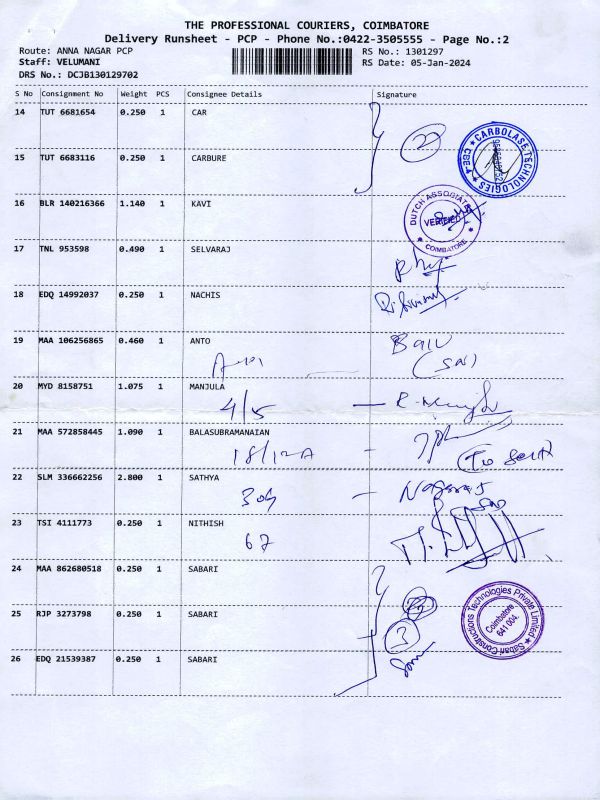 THE PROFESSIONAL COURIERS, COIMBATORE
Delivery Runsheet - PCP - Phone No.:0422-3505555 - Page No.:2
Route: ANNA NAGAR PCP RS No.: 1301297
Staff: VELUMANI RS Date: 05-Jan-2024
DRS No.: DCJB130129702
S No Consignment No Weight PCS Consignee Details Signature
14 TUT 6681654 0.250 1 CAR
15 TUT 6683116 0.250 1 CARBURE
CARBOLASE TECHNOLOGIES
16 BLR 140216366 1.140 1 KAVI
DUTCH ASSOCIATE
VERIFIED
COIMBATORE
17 TNL 953598 0.490 1 SELVARAJ
18 EDQ 14992037 0.250 1 NACHIS
19 MAA 106256865 0.460 1 ANTO
20 MYD 8158751 1.075 1 MANJULA
4/5
21 MAA 572858445 1.090 1 BALASUBRAMANAIAN
18/12A
22 SLM 336662256 2.800 1 SATHYA
23 TSI 4111773 0.250 1 NITHISH
67
24 MAA 862680518 0.250 1 SABARI
25 RJP 3273798 0.250 1 SABARI
3
Sabari Constructions Technologies Private Limited
Coimbatore
641 004.
26 EDQ 21539387 0.250 1 SABARI